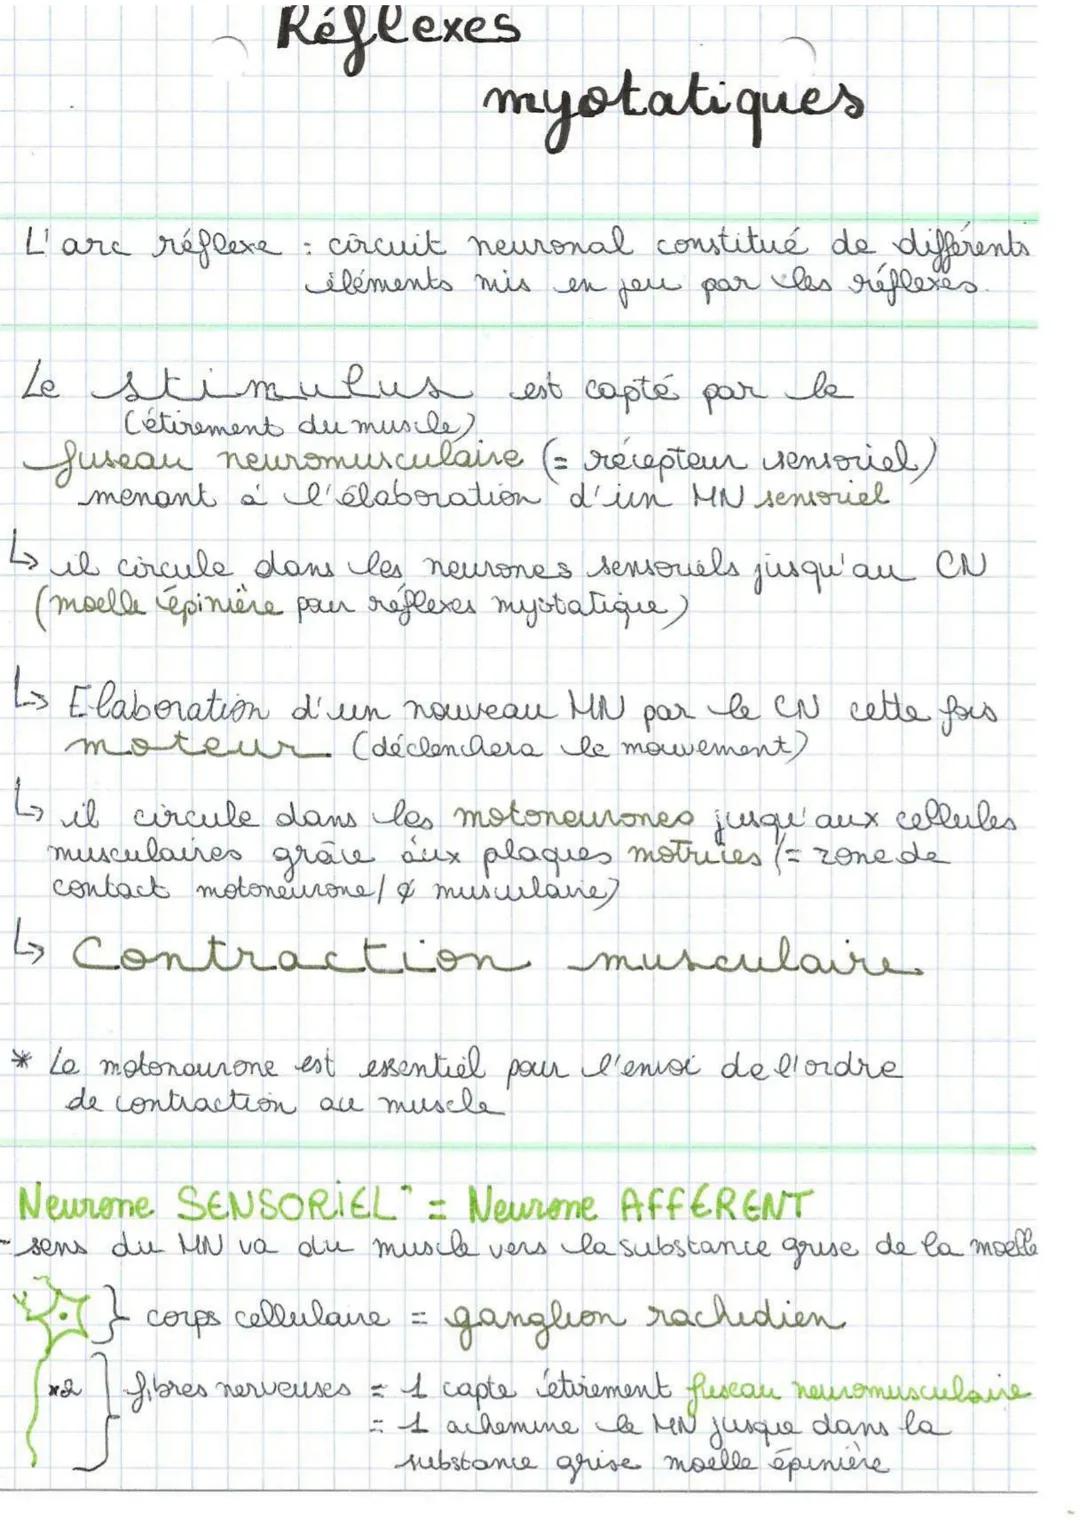 Réflexes
myotatiques
L'arc réflexe : circuit neuronal constitué de différents
éléments mis en jeu par les réflexes.
Le stimulus est capté par le
(étirement du muscle)
fuseau neuromusculaire (= récepteur sensoriel)
menant à l'élaboration d'un MN sensoriel
↳ il circule dans les neurones sensoriels jusqu'au CN
(moelle épinière pour réflexes myotatique)
↳ Elaboration d'un nouveau MN par le CN cette fois
moteur (déclenchera le mouvement)
↳ il circule dans les motoneurones jusqu'aux cellules
musculaires grâce aux plaques motrices (= zone de
contact motoneurone/¢ musculaire)
↳ Contraction musculaire
* Le motoneurone est essentiel pour l'envoi de l'ordre
de contraction au muscle
Neurone SENSORIEL = Neurone AFFÉRENT
- sens du MN va du muscle vers la substance grise de la moelle
} corps cellulaire = ganglion rachidien
x2 } fibres nerveuses = 1 capte étirement fuseau neuromusculaire
= 1 achemine le MN jusque dans la
substance grise moelle épinière